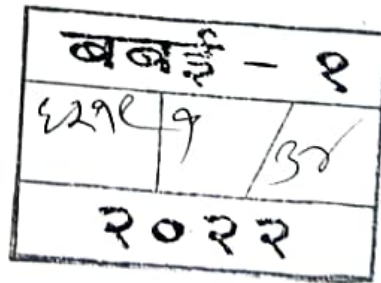 बबई - १
६२१८ १ / ३०
२०२२